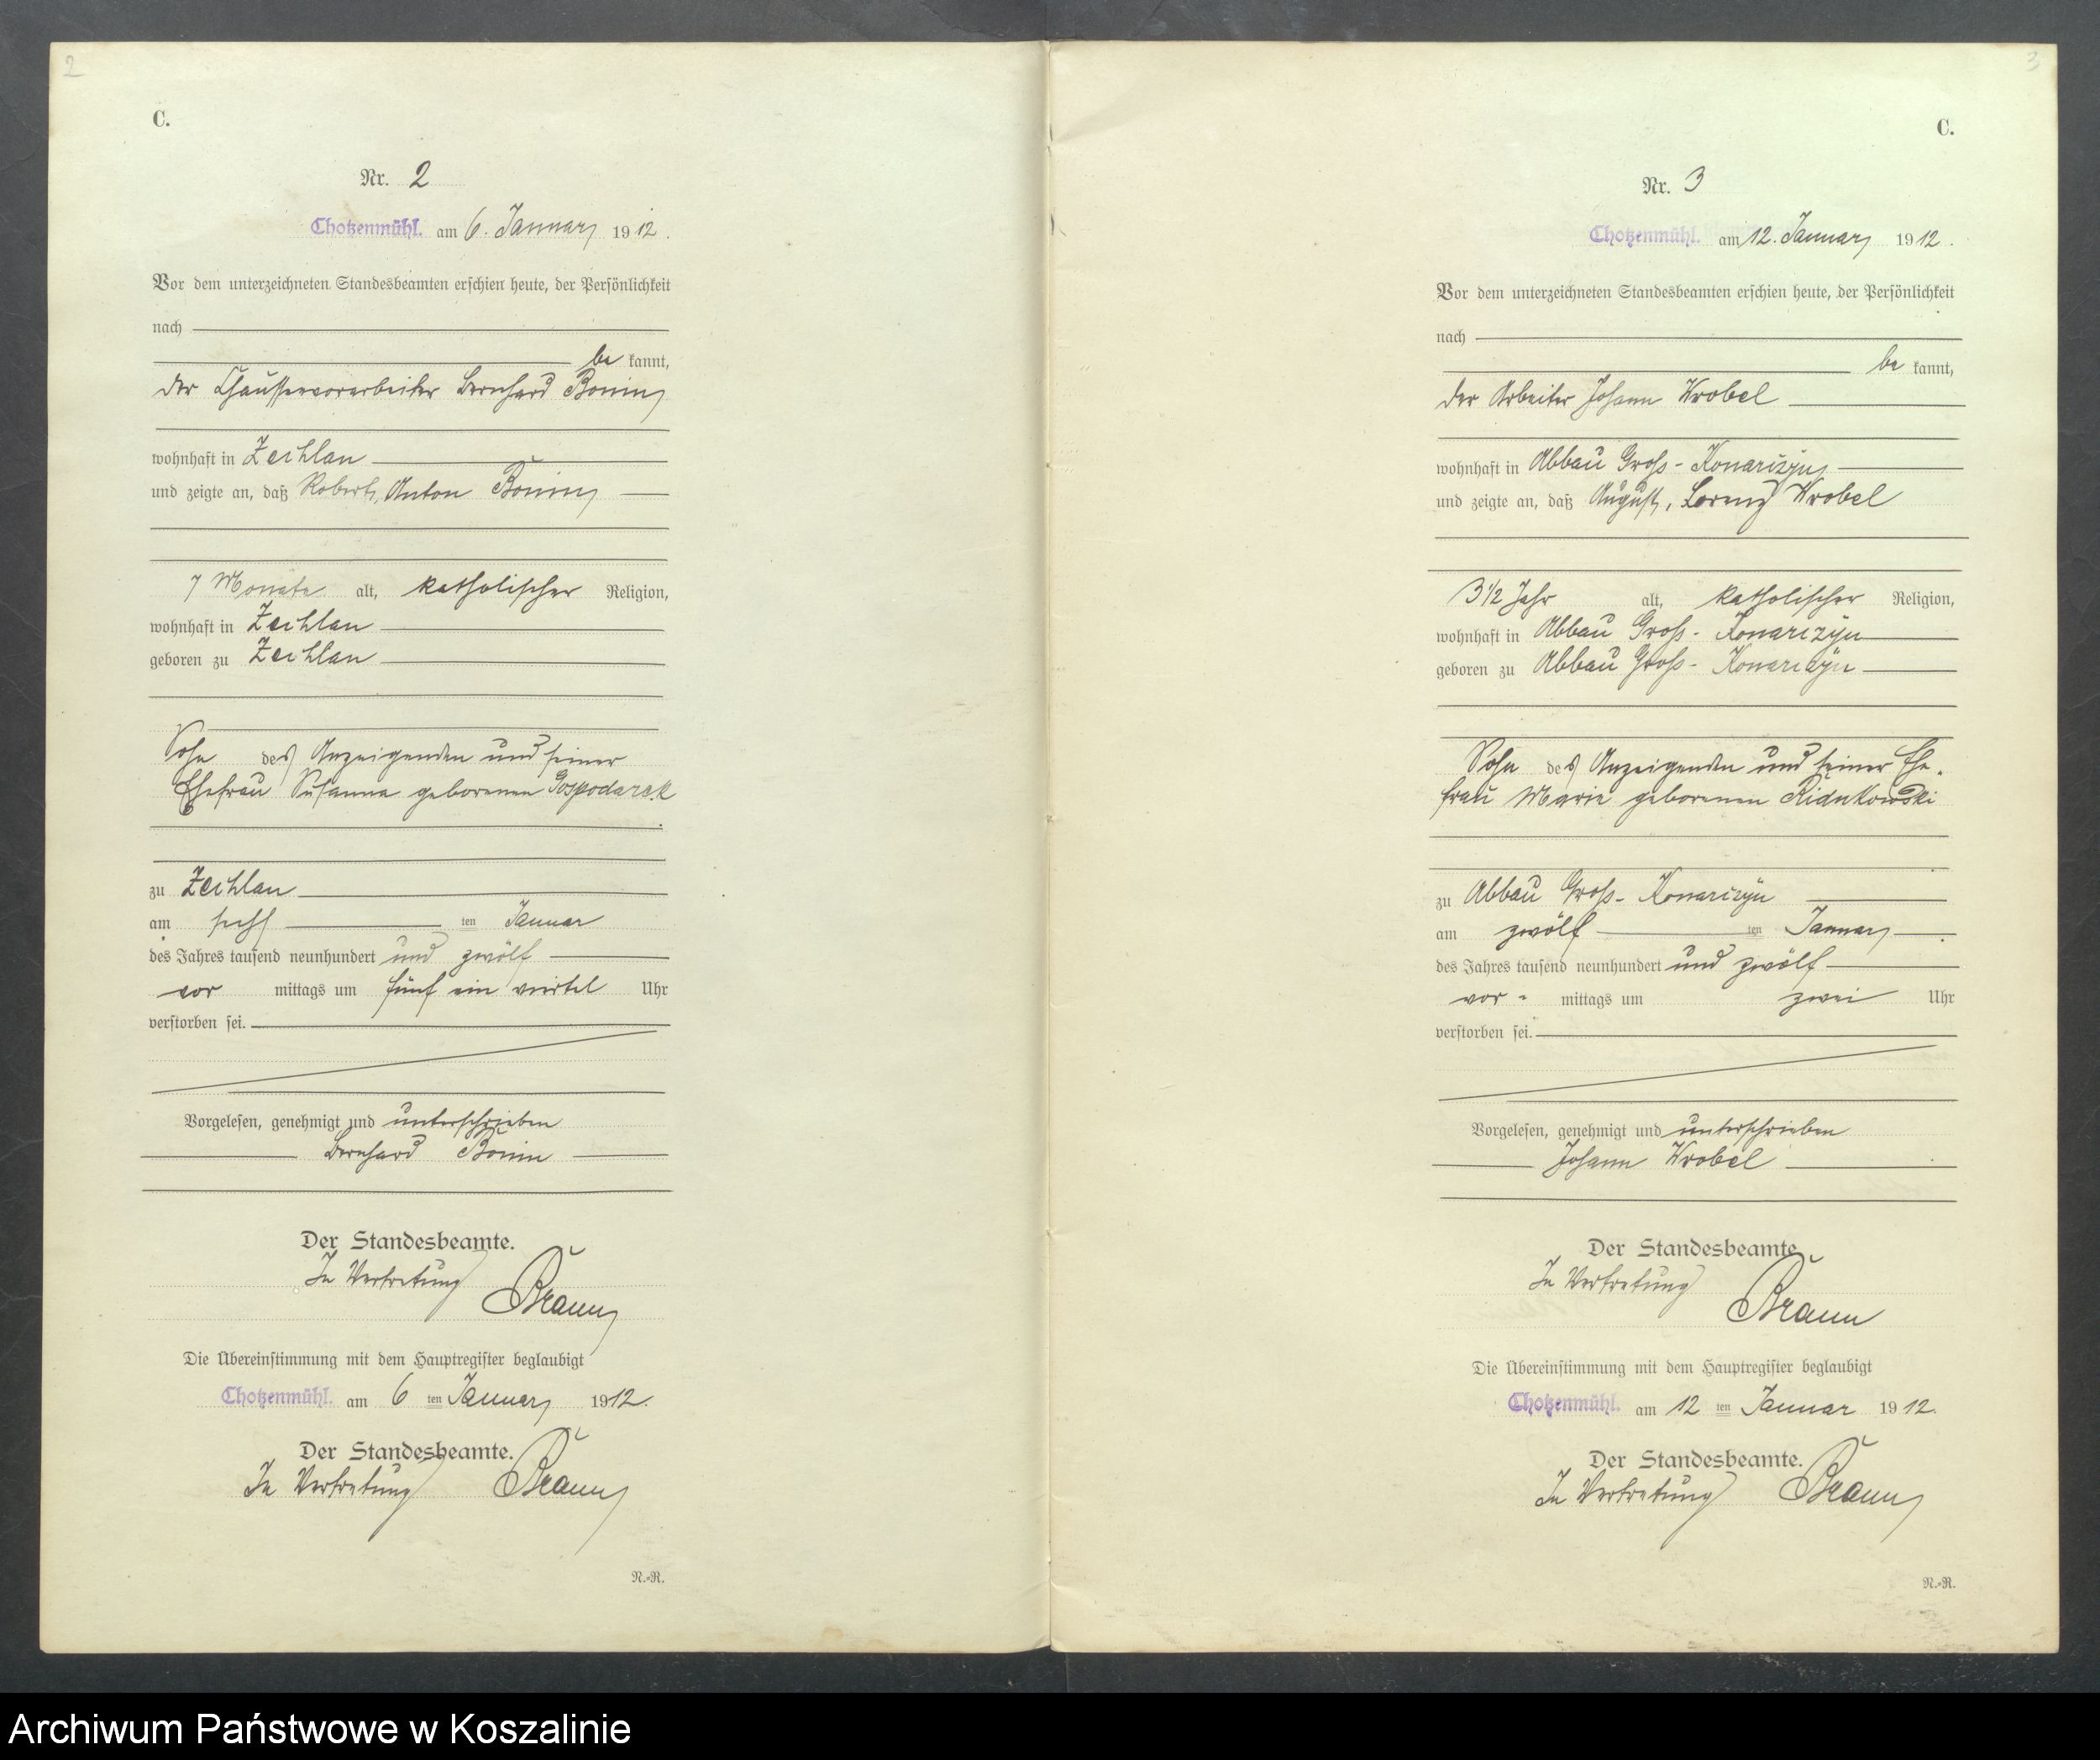 2
C.
Nr. 2
Chotzenmühl. am 6. Januar 1912.
Vor dem unterzeichneten Standesbeamten erschien heute, der Persönlichkeit
nach
be kannt,
der Chausseevorarbeiter Bernhard Bonin
wohnhaft in Zechlau
und zeigte an, daß Robert, Anton Bonin
7 Monate alt, katholischer Religion,
wohnhaft in Zechlau
geboren zu Zechlau
Sohn des Anzeigenden und seiner
Ehefrau Susanna geborenen Gospodarek
zu Zechlau
am sechs ten Januar
des Jahres tausend neunhundert und zwölf
vor mittags um fünf ein viertel Uhr
verstorben sei.
Vorgelesen, genehmigt und unterschrieben
Bernhard Bonin
Der Standesbeamte.
In Vertretung Braun
Die Übereinstimmung mit dem Hauptregister beglaubigt
Chotzenmühl. am 6 ten Januar 1912.
Der Standesbeamte.
In Vertretung Braun
N.-R.
3
C.
Nr. 3
Chotzenmühl. am 12. Januar 1912.
Vor dem unterzeichneten Standesbeamten erschien heute, der Persönlichkeit
nach
be kannt,
der Arbeiter Johann Wrobel
wohnhaft in Abbau Groß-Konarczyn
und zeigte an, daß August, Lorenz Wrobel
3 1/2 Jahr alt, katholischer Religion,
wohnhaft in Abbau Groß-Konarczyn
geboren zu Abbau Groß-Konarczyn
Sohn des Anzeigenden und seiner Ehe-
frau Marie geborenen
zu Abbau Groß-Konarczyn
am zwölf ten Januar
des Jahres tausend neunhundert und zwölf
vor- mittags um zwei Uhr
verstorben sei.
Vorgelesen, genehmigt und unterschrieben
Johann Wrobel
Der Standesbeamte
In Vertretung Braun
Die Übereinstimmung mit dem Hauptregister beglaubigt
Chotzenmühl. am 12 ten Januar 1912.
Der Standesbeamte.
In Vertretung Braun
N.-R.
Archiwum Państwowe w Koszalinie